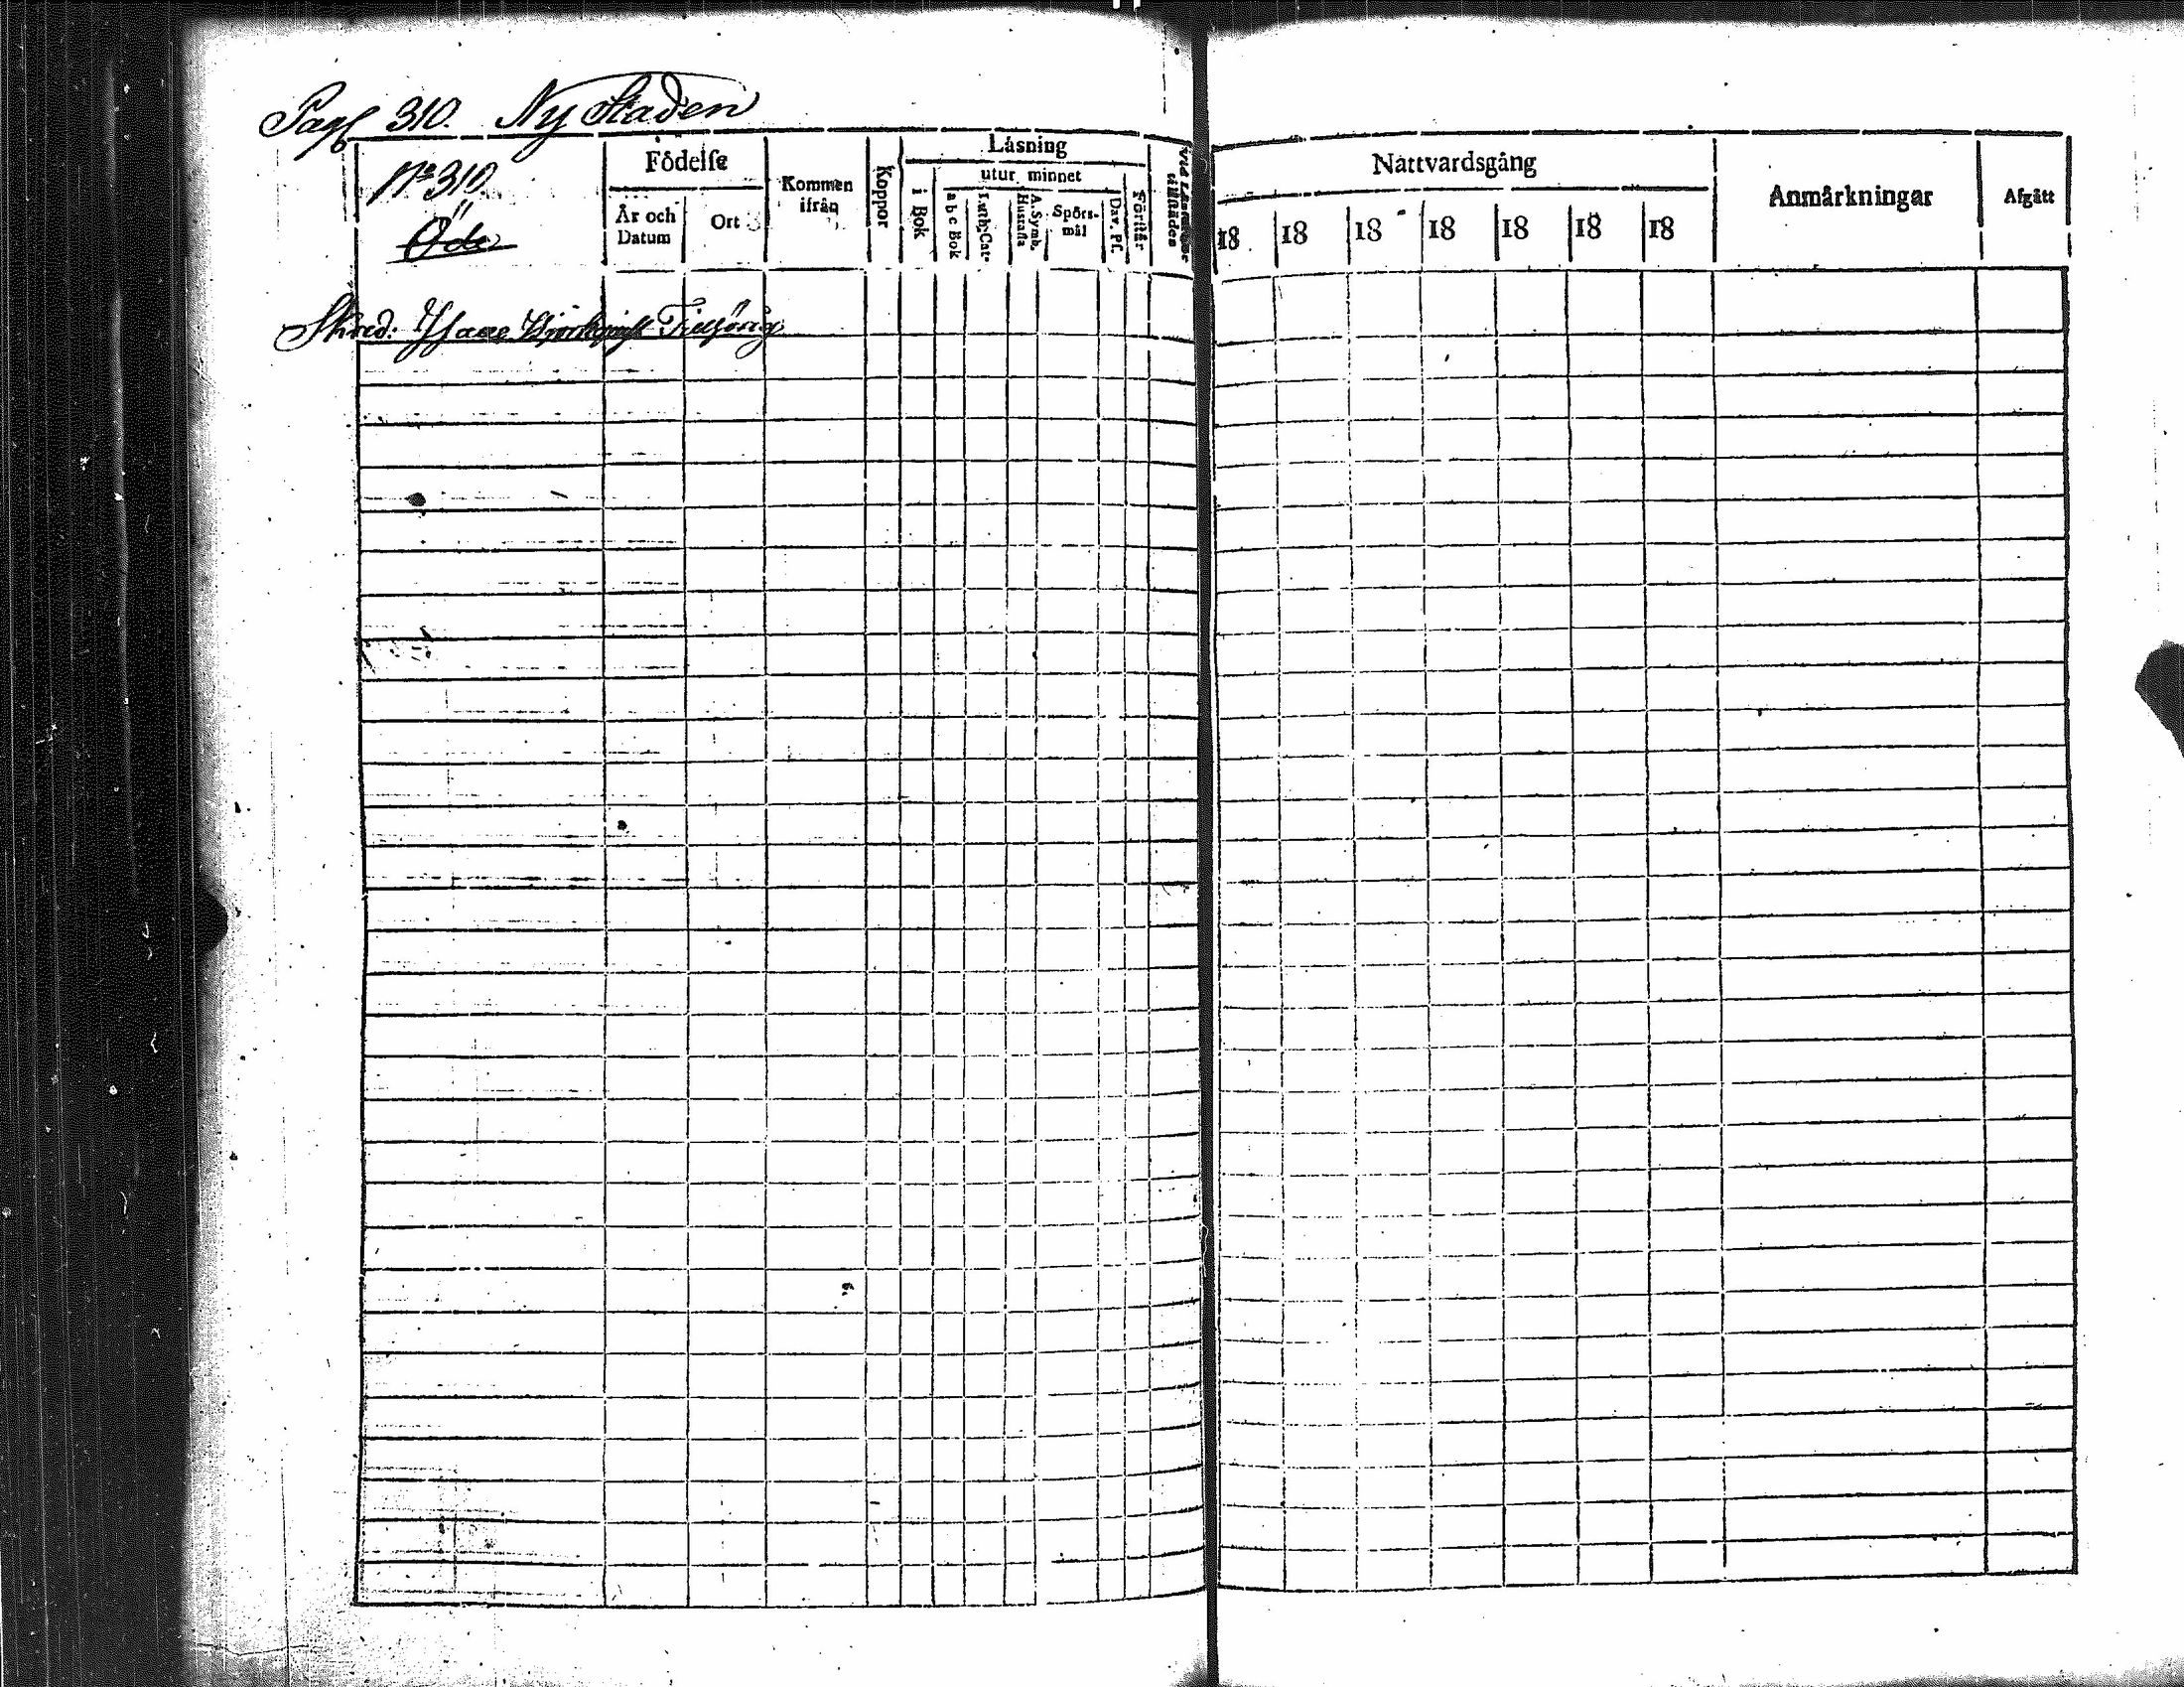 Pag 310. Ny Staden
No 310.
Öde
Födelse
År och Datum
Ort
Kommen ifrån
Koppor
Läsning
i Bok
utur minnet
a b c Bok
Luth. Cat.
A. Symb. Hustafla
Spörsmål
Dav. Ps.
Förstår
Vid Läsningar tillstädes
Nattvardsgång
18 18 18 18 18 18 18
Anmärkningar
Afgått
Skred: Isaac Tillhörig